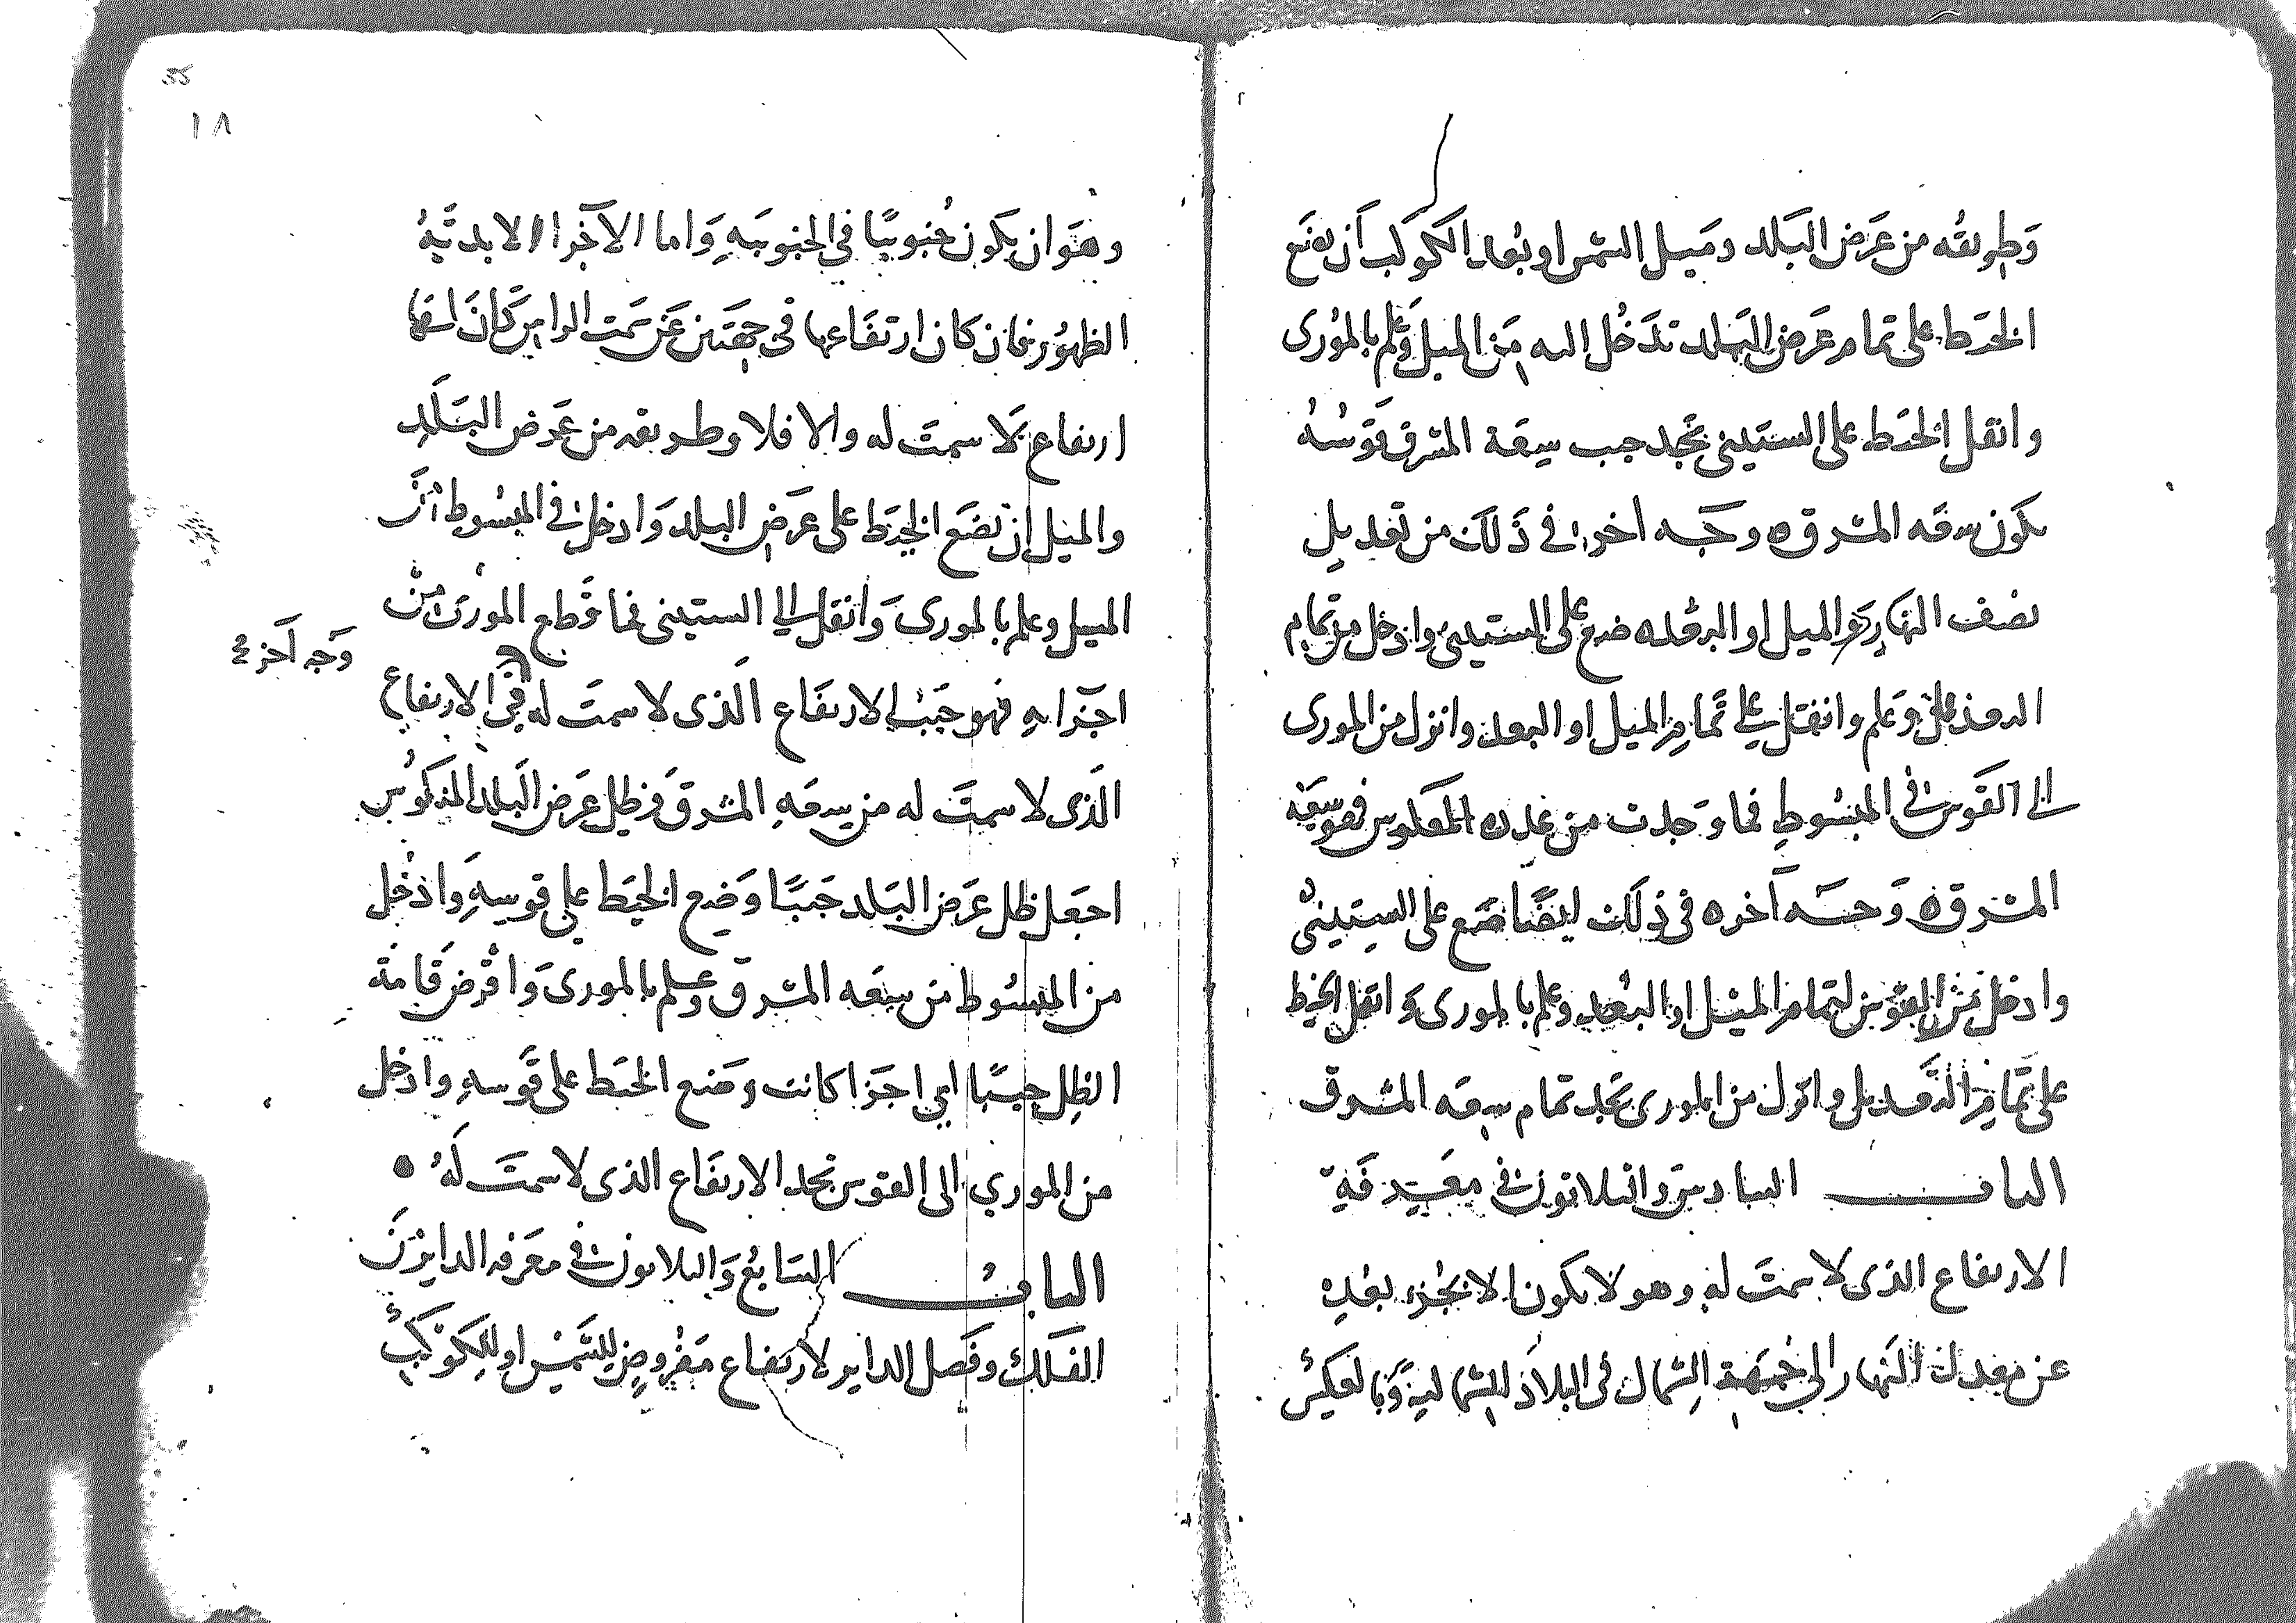 وطريقه من عرض البلد وميل الشمس او بعد الكوكب ان تضع
الخيط على تمام عرض البلد تدخل اليه من الميل وعلم بالمورى
وانقل الخيط على الستينى تجد جيب سعة المشرق قوسه
يكون سعه المشرق ه وجه اخر في ذلك من تعديل
نصف النهار والميل او البعد ضع على الستيني وادخل من تمام
وعلم وانقل على تمام الميل او البعد وانزل من المورى
الى القوس في المبسوط فما وجدت من عدد المعكوس فهو سعه
المشرق ه وجه آخر ه في ذلك ايضا ضع على الستيني
وادخل من القوس لتمام الميل او البعد وعلم بالمورى وانقل الخيط
على تمام التعديل وانزل من المورى تجد تمام سعه المشرق
الباب السادس والثلاثون في معرفة
الارتفاع الذى لا سمت له وهو لا يكون الا لجزء بعده
عن معدل النهار الى جهة الشمال في البلاد الشمالية وبالعكس
١٨
وهو ان يكون جنوبيا في الجنوبيه واما الاخر الابدية
الظهور فان كان ارتفاعها في جهتين عن سمت الراس كان لها
ارتفاع لا سمت له والا فلا وطريقه من عرض البلد
والميل ان تضع الخيط على عرض البلد وادخل في المبسوط من
الميل وعلم بالمورى وانقل الى الستينى فما قطع المورى من
اجزايه فهو جيب الارتفاع الذى لا سمت له في الارتفاع
وجه آخر
الذى لا سمت له من سعه المشرق وظل عرض البلد المذكور
اجعل ظل عرض البلد جيبا وضع الخيط على قوسه وادخل
من المبسوط من سعه المشرق وعلم بالمورى وافرض قامة
الظل جيبا اى اجزا كانت وضع الخيط على قوسه وادخل
من المورى الى القوس تجد الارتفاع الذى لا سمت له ه
الباب السابع والثلاثون في معرفه الداير من
الفلك وفصل الداير لارتفاع مفروض للشمس او للكوكب